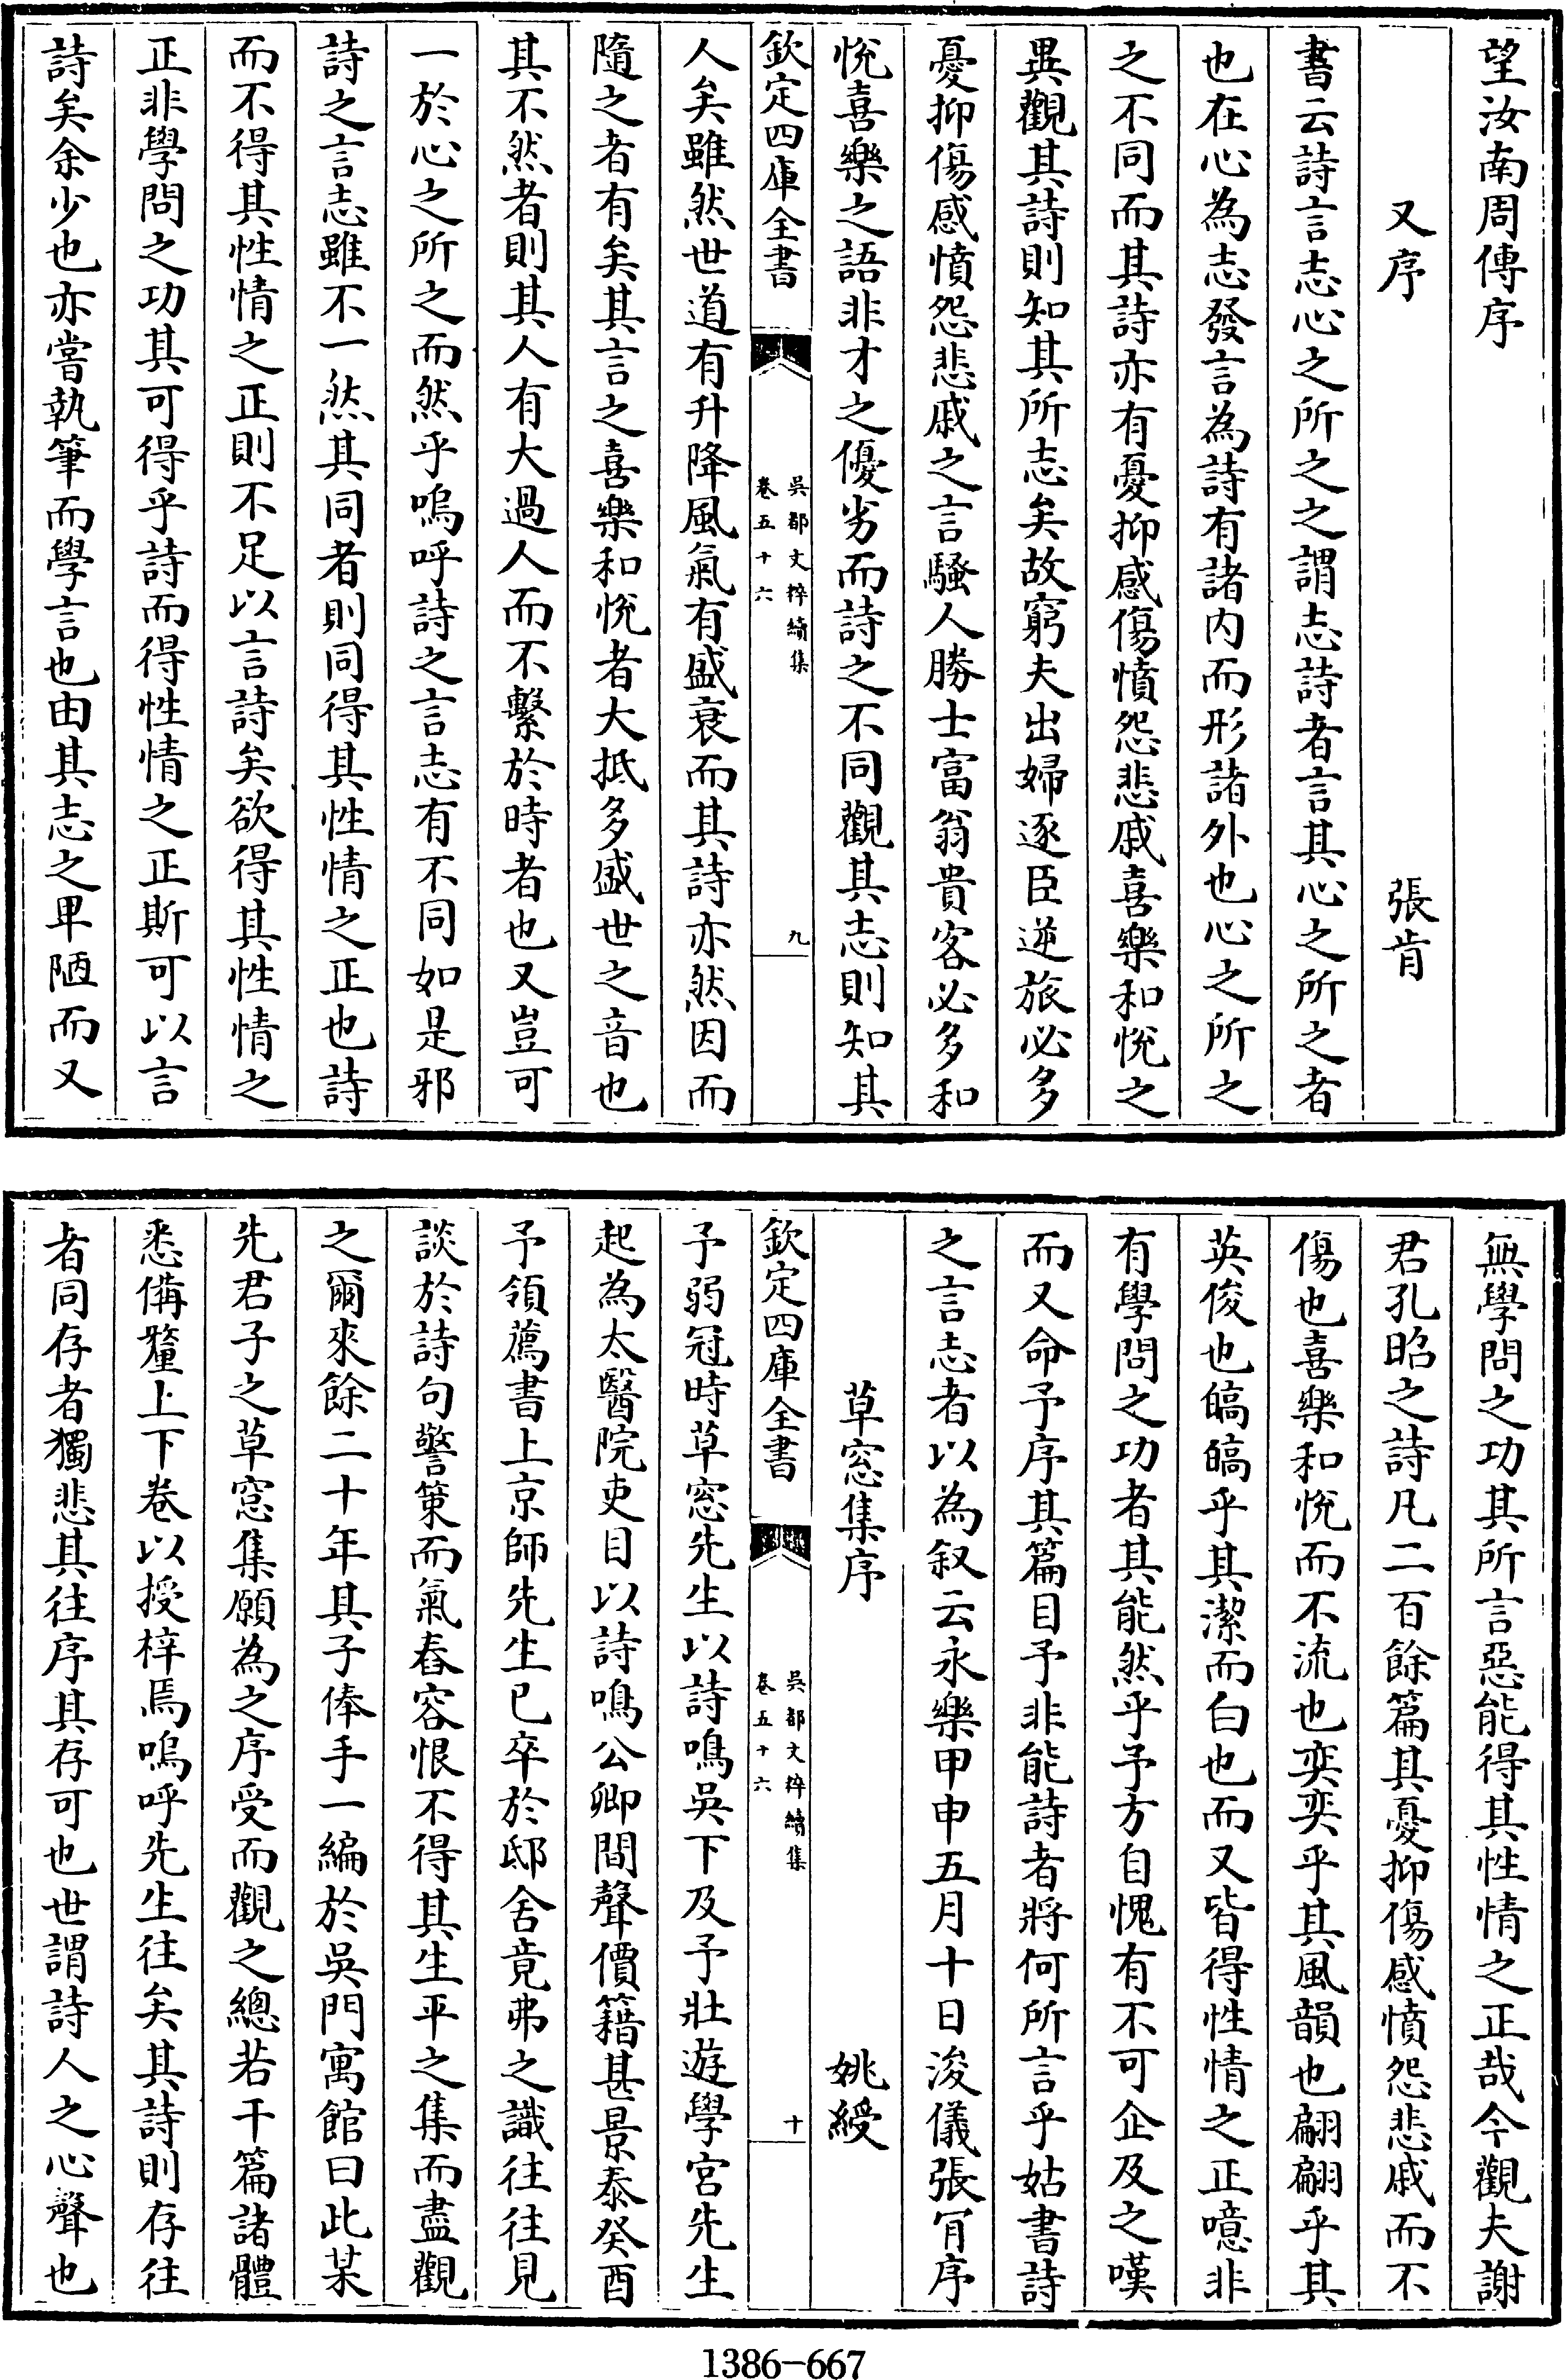 望汝南周傳序
又序　張肯
書云詩言志心之所之之謂志詩者言其心之所之者
也在心為志發言為詩有諸内而形諸外也心之所之
之不同而其詩亦有憂抑感傷憤怨悲戚喜樂和悅之
異觀其詩則知其所志矣故窮夫出婦逐臣逆旅必多
憂抑傷感憤怨悲戚之言騷人勝士富翁貴客必多和
悅喜樂之語非才之優劣而詩之不同觀其志則知其
欽定四庫全書
吳都文粹續集
卷五十六
九
人矣雖然世道有升降風氣有盛衰而其詩亦然因而
隨之者有矣其言之喜樂和悅者大抵多盛世之音也
其不然者則其人有大過人而不繫於時者也又豈可
一於心之所之而然乎嗚呼詩之言志有不同如是邪
詩之言志雖不一然其同者則同得其性情之正也詩
而不得其性情之正則不足以言詩矣欲得其性情之
正非學問之功其可得乎詩而得性情之正斯可以言
詩矣余少也亦嘗執筆而學言也由其志之卑陋而又
無學問之功其所言惡能得其性情之正哉今觀夫謝
君孔昭之詩凡二百餘篇其憂抑傷感憤怨悲戚而不
傷也喜樂和悅而不流也奕奕乎其風韻也翩翩乎其
英俊也皜皜乎其潔而白也而又皆得性情之正噫非
有學問之功者其能然乎予方自愧有不可企及之嘆
而又命予序其篇目予非能詩者將何所言乎姑書詩
之言志者以為叙云永樂甲申五月十日浚儀張肎序
草窓集序　姚綬
欽定四庫全書
吳都文粹續集
卷五十六
十
予弱冠時草窓先生以詩鳴吳下及予壯遊學宮先生
起為太醫院吏目以詩鳴公卿間聲價籍甚景泰癸酉
予領薦書上京師先生已卒於邸舍竟弗之識往往見
談於詩句警策而氣舂容恨不得其生平之集而盡觀
之爾來餘二十年其子俸手一編於吳門寓館曰此某
先君子之草窓集願為之序受而觀之總若干篇諸體
悉備釐上下卷以授梓焉嗚呼先生往矣其詩則存往
者同存者獨悲其往序其存可也世謂詩人之心聲也
1386-667